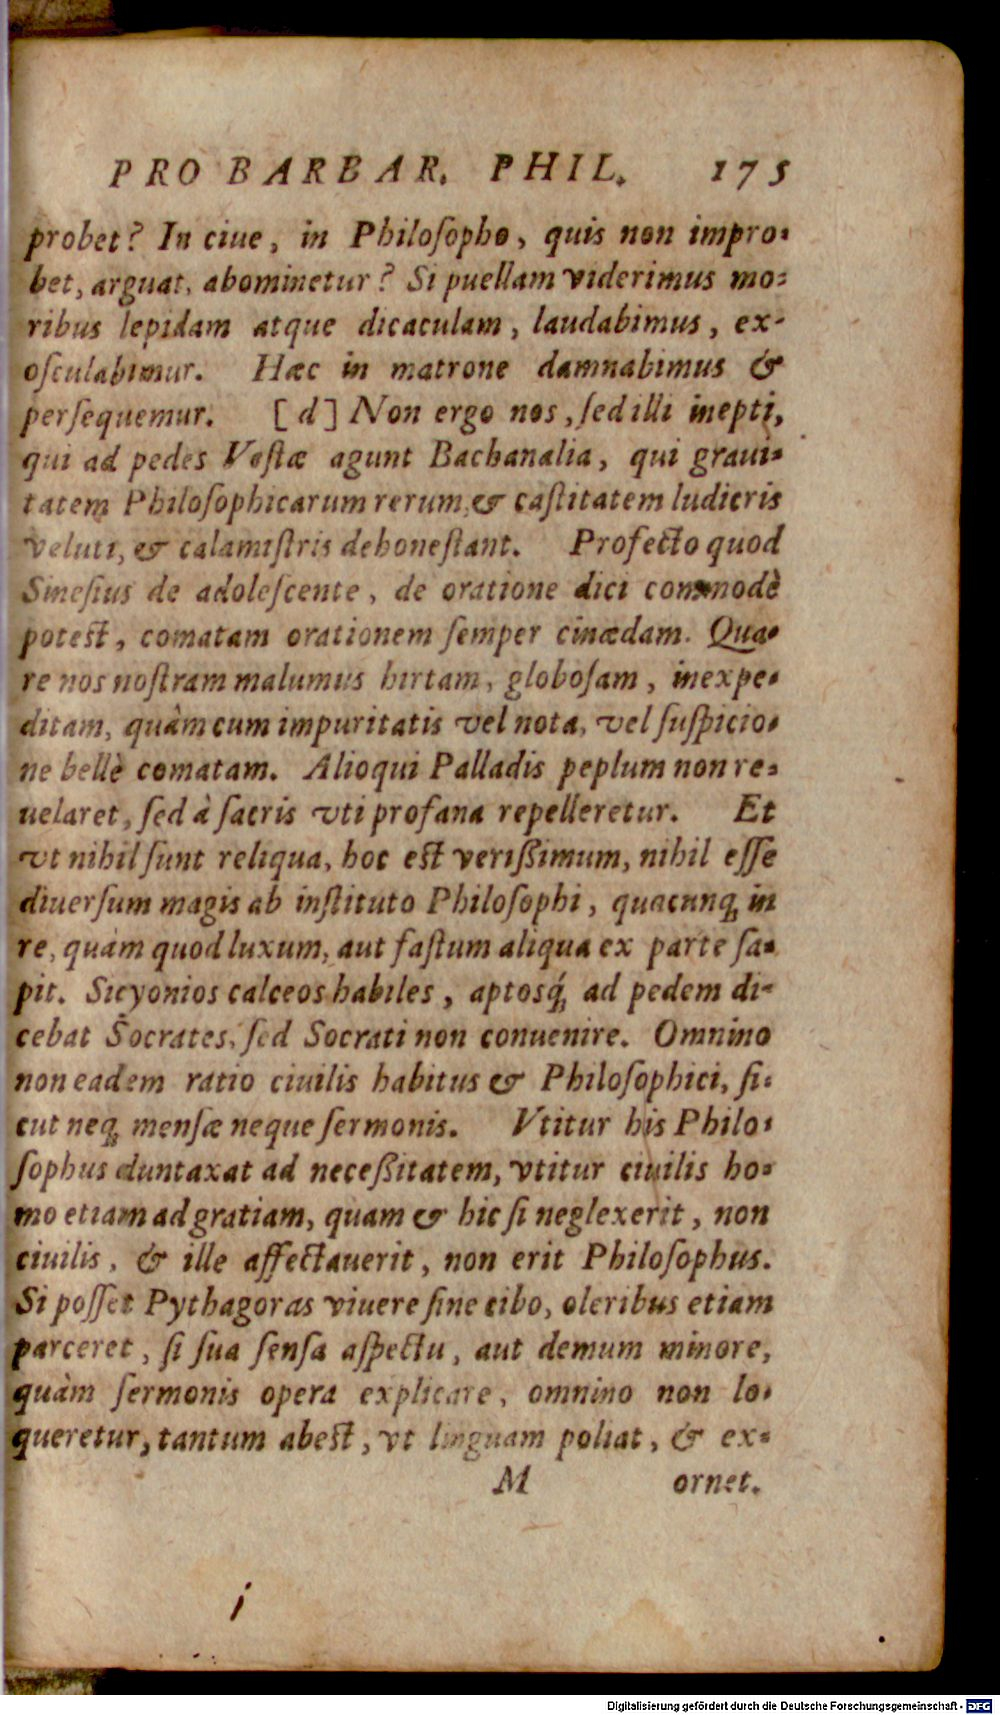 PRO BARBAR. PHIL. 175
probet? In ciue, in Philoſopho, quis non impro-
bet, arguat, abominetur? Si puellam viderimus mo-
ribus lepidam atque dicaculam, laudabimus, ex-
oſculabimur. Hæc in matrone damnabimus &
perſequemur. [d] Non ergo nos, ſed illi inepti,
qui ad pedes Veſtæ agunt Bachanalia, qui graui-
tatem Philoſophicarum rerum, & caſtitatem ludicris
veluti, & calamiſtris dehoneſtant. Profecto quod
Sineſius de adoleſcente, de oratione dici commodè
poteſt, comatam orationem ſemper cinædam. Qua-
re nos noſtram malumus hirtam, globoſam, inexpe-
ditam, quàm cum impuritatis vel nota, vel ſuſpicio-
ne bellè comatam. Alioqui Palladis peplum non re-
uelaret, ſed à ſacris vti profana repelleretur. Et
vt nihil ſunt reliqua, hoc eſt verißimum, nihil eſſe
diuerſum magis ab inſtituto Philoſophi, quacunq; in
re, quàm quod luxum, aut faſtum aliqua ex parte ſa-
pit. Sicyonios calceos habiles, aptosq́; ad pedem di-
cebat Socrates, ſed Socrati non conuenire. Omnino
non eadem ratio ciuilis habitus & Philoſophici, ſi-
cut neq; menſæ neque ſermonis. Vtitur his Philo-
ſophus duntaxat ad neceßitatem, vtitur ciuilis ho-
mo etiam ad gratiam, quam & hic ſi neglexerit, non
ciuilis, & ille affectauerit, non erit Philoſophus.
Si poſſet Pythagoras viuere ſine cibo, oleribus etiam
parceret, ſi ſua ſenſa aſpectu, aut demum minore,
quàm ſermonis opera explicare, omnino non lo-
queretur, tantum abeſt, vt linguam poliat, & ex-
M ornet.
i
Digitalisierung gefördert durch die Deutsche Forschungsgemeinschaft - DFG